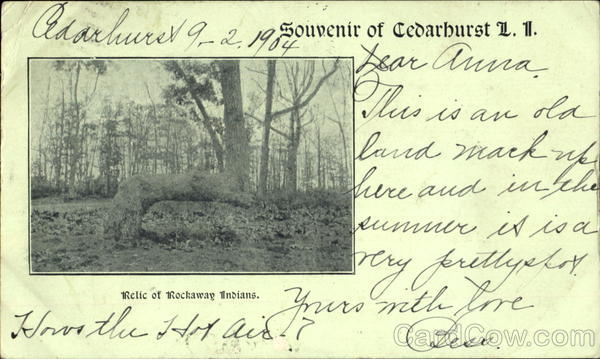 Cedarhurst 9-2, 1904
Souvenir of Cedarhurst L. I.
Dear Anna.
This is an old
land mark up
here and in the
summer it is a
very pretty spot.
Relic of Rockaway Indians.
Yours with love
Hows the Hot Air?
CardCow.com